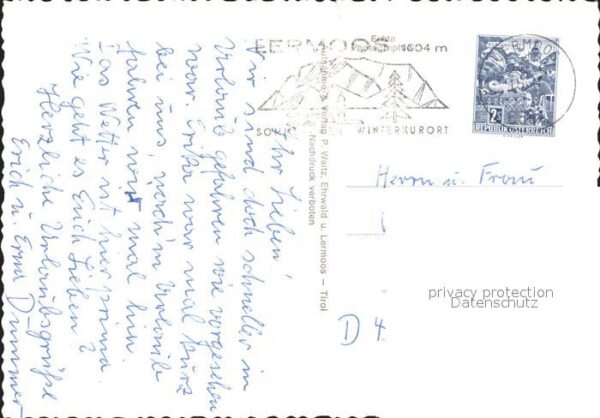 Ihr Lieben!
Wir sind doch schneller in
Urlaub gefahren wie vorgesehen
war. Erika war mal kurz
bei uns, nach'm Urlaub
fahren wir mal hin.
Das Wetter ist hier prima.
Wie geht es Euch Lieben?
Herzliche Urlaubsgrüße
Erich u. Erna Dummer
P. Waitz, Ehrwald u. Lermoos – Tirol
Nachdruck verboten
Echte
Photographie
LERMOOS 1004 m
SOMMER WINTERKURORT
LERMOOS
2 S
REPUBLIK ÖSTERREICH
Herrn u. Frau
D 4.
privacy protection
Datenschutz